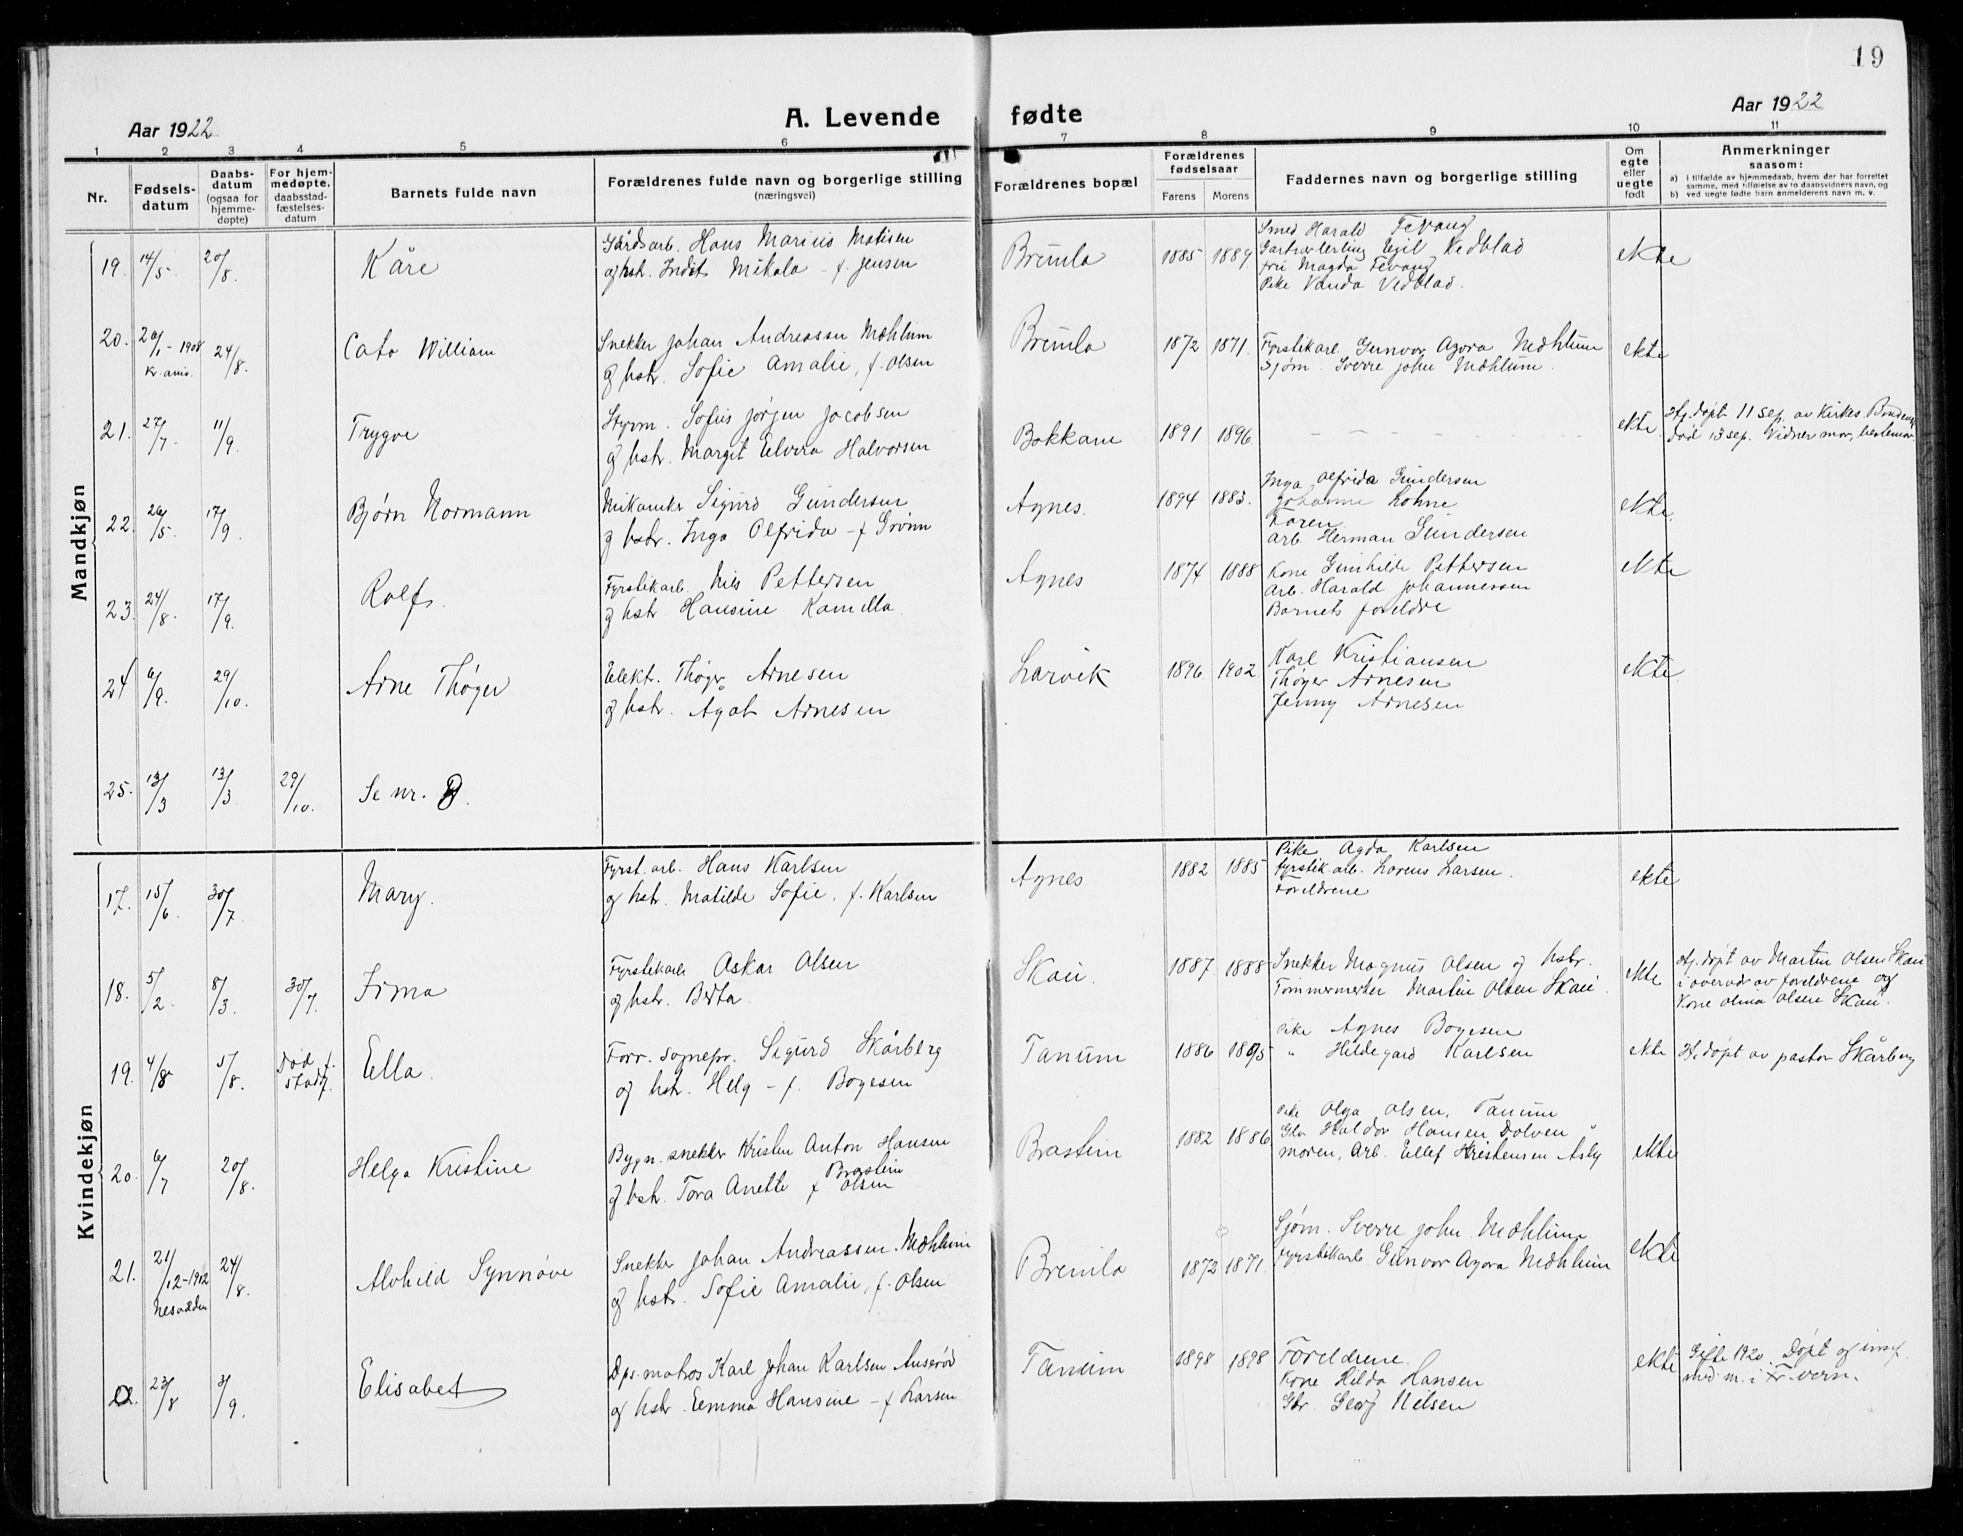 19
Aar 1922
A. Levende fødte
Aar 1922
1 2 3 4 5 6 7 8 9 10 11
Nr.
Fødsels-
datum
Daabs-
datum
(ogsaa for
hjemme-
døpte)
For hjem-
medøpte,
daabsstad-
fæstelses-
datum
Barnets fulde navn
Forældrenes fulde navn og borgerlige stilling
(næringsvei)
Forældrenes bopæl
Forældrenes
fødselsaar
Farens Morens
Faddernes navn og borgerlige stilling
Om
egte
eller
uegte
født
Anmerkninger
saasom:
a) i tilfælde av hjemmedaab, hvem der har forrettet
samme, med tilføielse av to daabsvidners navn, og
b) ved uegte fødte barn anmelderens navn m. v.
Mandkjøn
19. 14/5 20/8. Kåre
Gårdsarb. Hans Marius Matisen
og hst. Mikala - f. Jensen
Brunla 1885 1889
Smed Harald Fevang
Egil Vedblad
fru Magda Fevang
Pike Vanda Vedblad.
ekte
20. 20/1-1908 24/8.
Kr.ania.
Cato William
Snekker Johan Andreassen Mæhlum
og hst. Sofie Amalie, f. Olsen
Brunla 1872 1871.
Fyrstikarb. Gunvor Agora Mæhlum
Sjøm. Sverre John Mæhlum.
ekte
21. 27/7. 11/9. Trygve
Styrm. Sofus Jørgen Jacobsen
og hst. Margit Elvira Halvorsen
Bakkane 1891 1896.
ekte.
Hj. døpt 11 sep. av Kirkes.
død 13 sep. Vidner mor, bestemor
22. 20/5. 17/9. Bjørn Normann
Sigurd Gundersen
og hst. Inga Alfrida - f Grønn
Agnes. 1894 1883.
Inga Alfrida Gundersen
Johanne Lohne
Faren
arb. Herman Gundersen
ekte.
23. 24/8. 17/9. Rolf.
Fyrstikarb. Nils Pettersen
og hst. Hansine Kamilla.
Agnes 1874 1888
Kone Gunhilde Pettersen
Arb. Harald Johannessen
Barnets foreldre
ekte
24 6/9. 29/10. Arne Thøger
Elekt. Thøger Arnesen
og hst. Agat Arnesen
Larvik 1896 1902.
Karl Kristiansen
Thøger Arnesen
Jenny Arnesen
ekte
25. 13/3 13/3 29/10. Se nr. 8.
Kvindekjøn
17. 15/6. 30/7. Mary.
Fyrst. arb. Hans Karlsen
og hst. Matilde Sofie, f. Karlsen
Agnes 1882 1885
Pike Agda Karlsen
fyrstik arb. Lorens Larsen.
Foreldrene
ekte
18. 5/2. 8/3. 30/7. Irma
Fyrstikarb. Oskar Olsen
og hst. Berta.
Skau 1887 1888
Snekker Magnus Olsen og hst.
Tømmermester Martin Olsen Skau.
ekte
Hj. døpt av Martin Olsen Skau
i overvær av foreldrene og
Kone Olina Olsen Skau.
19. 4/8 5/8. Død f.
stadf.
Ella.
Forr. sognepr. Sigurd Skårberg
og hst. Helg - f. Bogesen
Tanum 1886
pike Agnes Bogesen
" Hildegard Karlsen
ekte
Hj. døpt av pastor Skårberg
20. 6/7 20/8. Helga Kristine
Bygn. snekker Kristen Anton Hansen
Brastein
og hst. Tora Anette f Olsen
Brastein 1882 1886
pike Olga Olsen, Tanum
Gbr Haldor Hansen Dolven "
moren, Arb. Ellef Kristensen Asby
ekte
21. 21/12-1912 24/8.
Nesodden
Alvhild Synnøve
Snekker Johan Andreassen Mæhlum
og hst. Sofie Amalie, f. Olsen
Brunla 1872 1871
Sjøm. Sverre John Mæhlum
fyrstikarb Gunvor Agora Mæhlum
ekte
22. 23/8 3/9. Elisabet
Dps. matros Karl Johan Karlsen Auserød
og hst. Emma Hansine - f Larsen
Tanum 1898 1898
Foreldrene.
Kone Hilda Hansen
Gbr. Georg Nilsen
ekte
Gifte 1920. Døpt og
med m. i Fr.vern.